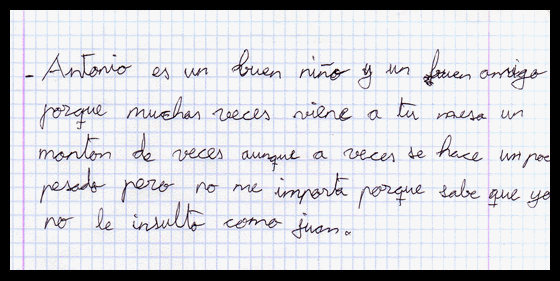 - Antonio es un buen niño y un buen amigo
porque muchas veces viene a tu mesa un
montón de veces aunque a veces se hace un poc
pesado pero no me importa porque sabe que yo
no le insulto como juan.